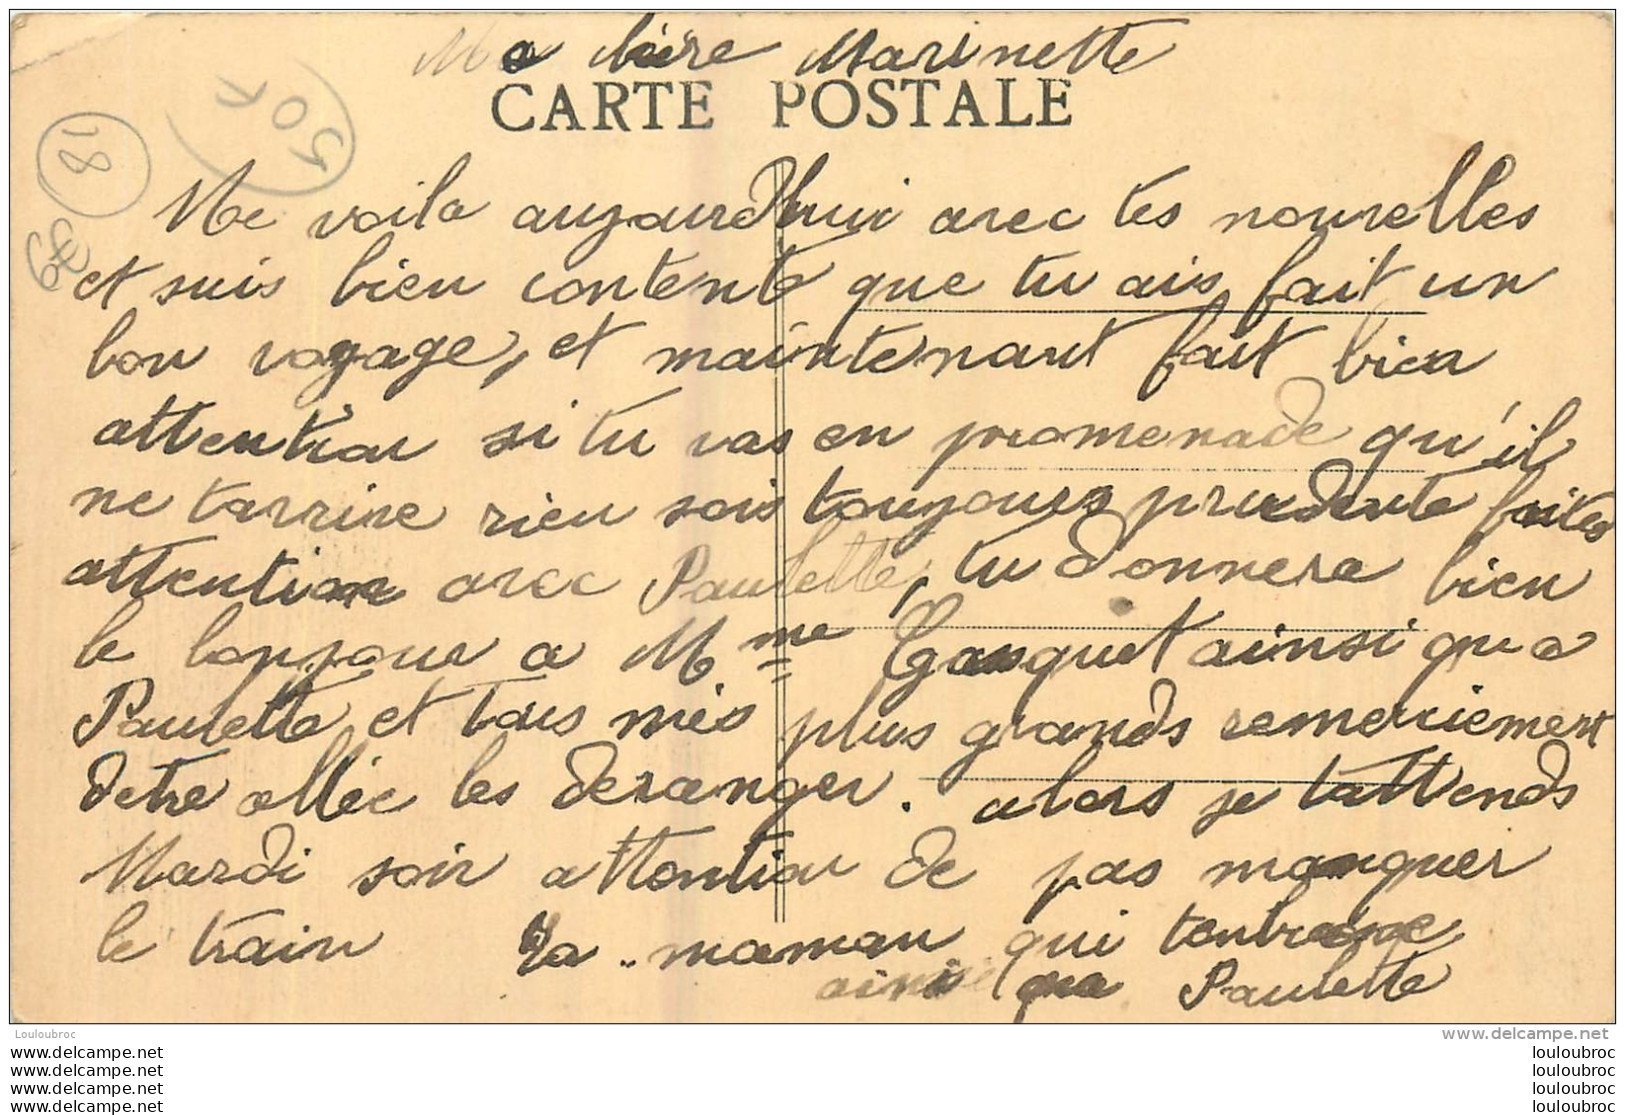 Ma chère Marinette
CARTE POSTALE
50F
18
79
Me voila aujourd'hui avec tes nouvelles
et suis bien contente que tu ais fait un
bon voyage, et maintenant fait bien
attention si tu vas en promenade qu'il
ne tarrive rien sois toujours prudente faites
attention avec Paulette, tu donnera bien
le bonjour a Mme Gasquet ainsi qu a
Paulette et tous mes plus grands remerciement
detre allée les deranger. alors je tattends
Mardi soir attention de pas manquer
le train Ta maman qui tenbrasse
ainsi que Paulette
Louloubroc
www.delcampe.net
www.delcampe.net
www.delcampe.net
www.delcampe.net
www.delcampe.net
louloubroc
louloubroc
louloubroc
louloubroc